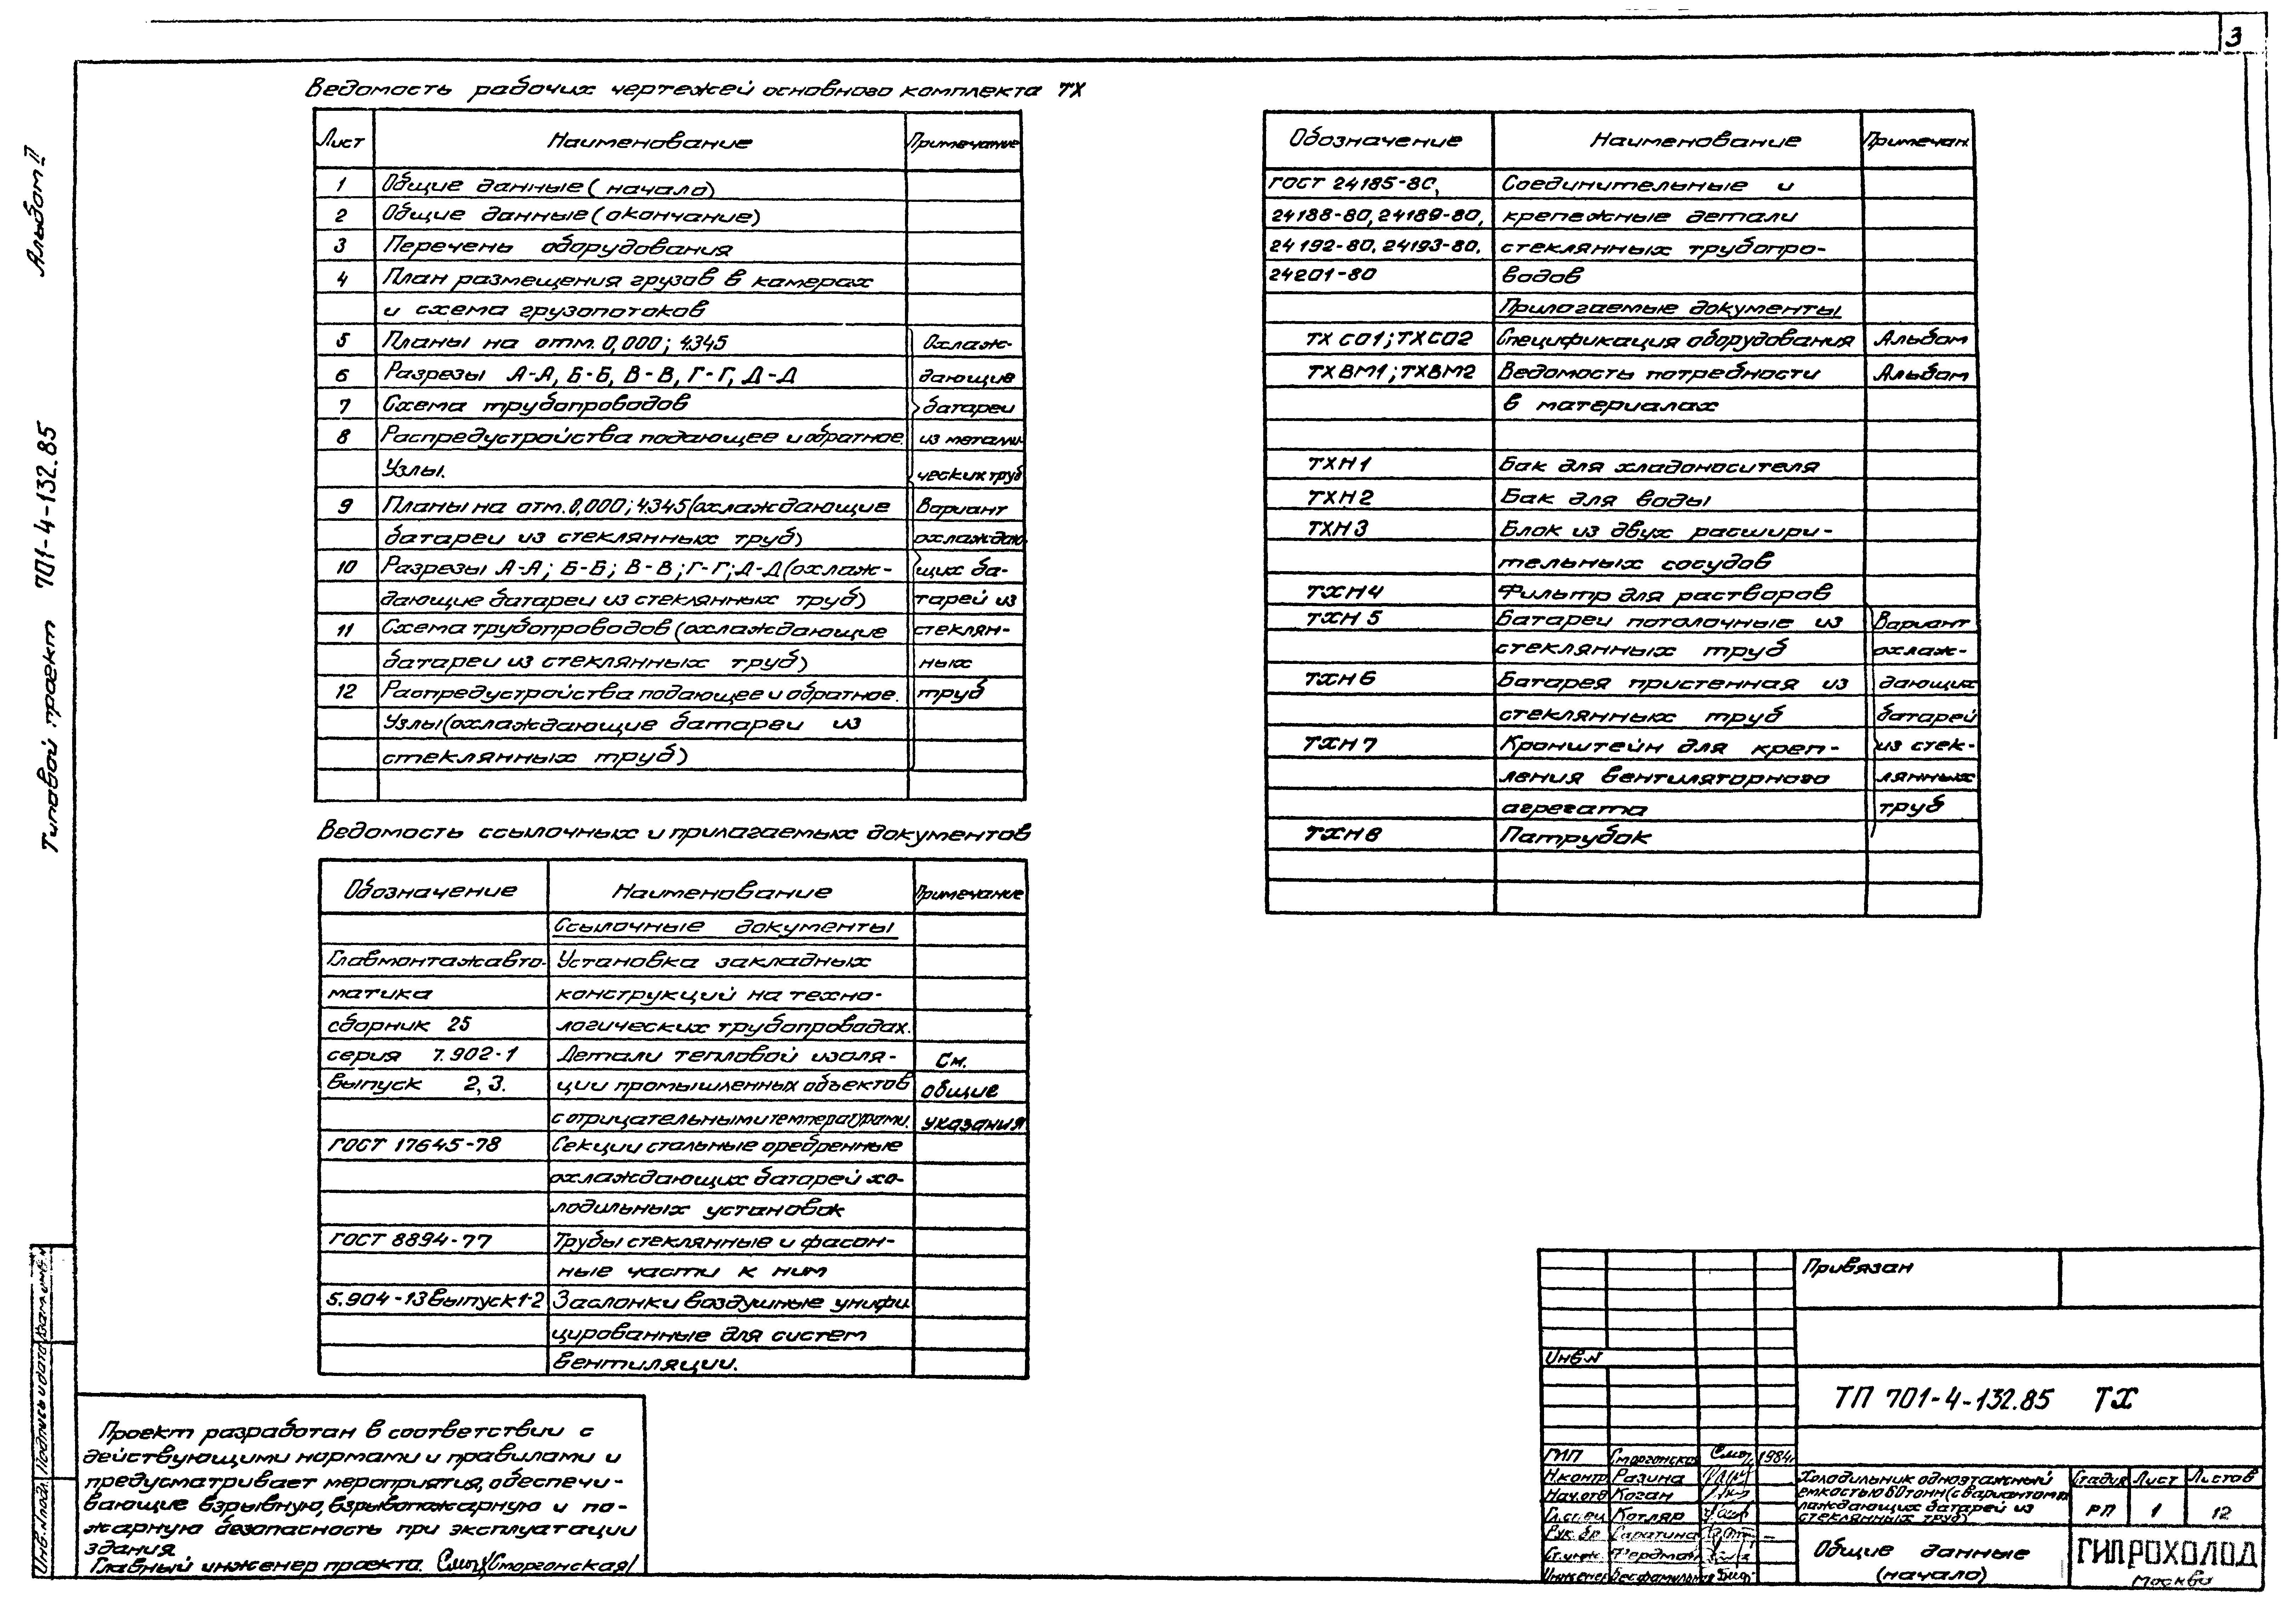 3
Альбом II
Типовой проект 701-4-132.85
Ведомость рабочих чертежей основного комплекта ТХ
Лист Наименование Примечание
1 Общие данные (начало)
2 Общие данные (окончание)
3 Перечень оборудования
4 План размещения грузов в камерах
и схема грузопотоков
5 Планы на отм. 0,000; 4.345 Охлаж-
6 Разрезы А-А, Б-Б, В-В, Г-Г, Д-Д дающие
7 Схема трубопроводов батареи
8 Распредустройства подающее и обратное. из металли-
Узлы. ческих труб
9 Планы на отм. 0,000; 4.345 (охлаждающие Вариант
батареи из стеклянных труб) охлаждаю-
10 Разрезы А-А; Б-Б; В-В; Г-Г; Д-Д (охлаж- щих ба-
дающие батареи из стеклянных труб) тарей из
11 Схема трубопроводов (охлаждающие стеклян-
батареи из стеклянных труб) ных
12 Распредустройства подающее и обратное. труб
Узлы (охлаждающие батареи из
стеклянных труб)
Ведомость ссылочных и прилагаемых документов
Обозначение Наименование Примечание
Ссылочные документы
Главмонтажавто- Установка закладных
матика конструкций на техно-
сборник 25 логических трубопроводах.
серия 7.902-1 Детали тепловой изоля- См.
выпуск 2,3. ции промышленных объектов общие
с отрицательными температурами. указания
ГОСТ 17645-78 Секции стальные оребренные
охлаждающих батарей хо-
лодильных установок
ГОСТ 8894-77 Трубы стеклянные и фасон-
ные части к ним
5.904-13 выпуск 1-2 Заслонки воздушные унифи
цированные для систем
вентиляции.
Обозначение Наименование Примечан.
ГОСТ 24185-80, Соединительные и
24188-80, 24189-80, крепежные детали
24192-80, 24193-80, стеклянных трубопро-
24201-80 водов
Прилагаемые документы
ТХ СО1; ТХСО2 Спецификация оборудования Альбом
ТХВМ1; ТХВМ2 Ведомость потребности Альбом
в материалах
ТХН1 Бак для хладоносителя
ТХН2 Бак для воды
ТХН3 Блок из двух расшири-
тельных сосудов
ТХН4 Фильтр для растворов
ТХН5 Батареи потолочные из Вариант
стеклянных труб охлаж-
ТХН6 Батарея пристенная из дающих
стеклянных труб батарей
ТХН7 Кронштейн для креп- из стек-
ления вентиляторного лянных
агрегата труб
ТХН8 Патрубок
Проект разработан в соответствии с
действующими нормами и правилами и
предусматривает мероприятия, обеспечи-
вающие взрывную, взрывопожарную и по-
жарную безопасность при эксплуатации
здания
Главный инженер проекта. /Сморгонская/
Инв.№подл. Подпись и дата Взам.инв.№
Привязан
Инв.№
ТП 701-4-132.85 ТХ
ГИП Сморгонская 1984г
Н.контр Разина
Нач.отд Коган
Гл.спец Котляр
Рук.бр Саратина
Ст.инж. Фердман
Инженер Бесфамильная
Холодильник одноэтажный
емкостью 60 тонн (с вариантом ох
лаждающих батарей из
стеклянных труб)
Стадия Лист Листов
РП 1 12
Общие данные
(начало)
ГИПРОХОЛОД
Москва